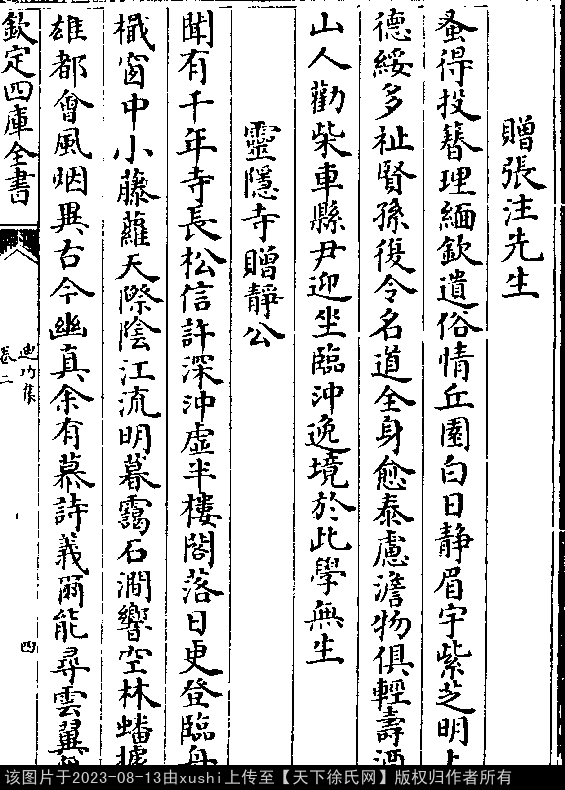 贈張注先生
蚤得投簪理緬欽遺俗情丘園白日靜眉宇紫芝明上
德綏多祉賢孫復令名道全身愈泰慮澹物俱輕壽酒
山人勸柴車縣尹迎坐臨沖逸境於此學無生
靈隱寺贈靜公
聞有千年寺長松信許深沖虚半樓閣落日更登臨舟
檝窗中小藤蘿天際陰江流明暮靄石澗響空林蟠據
雄都會風烟異古今幽真余有慕詩義爾能尋雲翼
欽定四庫全書
迪功集
卷二
四
该图片于2023-08-13由xushi上传至【天下徐氏网】版权归作者所有